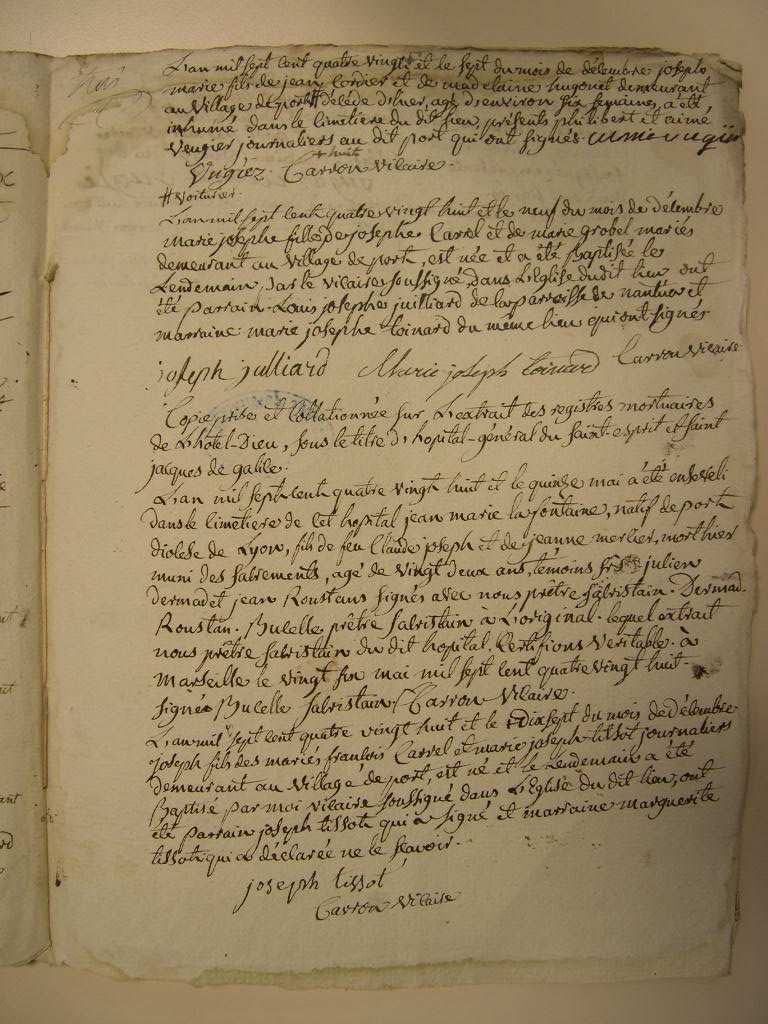 L'an mil sept cent quatre vingt et le sept du mois de décembre joseph
marie fils de jean Cordier et de madelaine hugonet demeurant
au village de port # décédé d'hier, agé d'environ six semaines, a été
inhumé dans le cimetiere du dit lieu, présents philibert et aimé
Vengier journaliers au dit port qui ont signés.
+ huit
Vugiez Carron Vicaire.
# voiturier.
L'an mil sept cent quatre vingt huit et le neuf du mois de décembre
marie josephe fille de josephe Carrel et de marie grobel mariés
demeurant au village de port, est née et a été Baptisée le
Lendemain, par le vicaire soussigné, dans L'Eglise du dit lieu ont
été parrain Louis josephe juilliard de la parroisse de nantua et
marraine marie josephe toinard du même lieu qui ont signés
joseph julliard Marie joseph toinard Carron Vicaire
Copie prise et Collationnée sur L'extrait des registres mortuaires
de L'hôtel-Dieu, sous le titre d'hopital-général du saint esprit et saint
jacques de galice.
L'an mil sept cent quatre vingt huit et le quinze mai a été enseveli
dans le cimetiere de cet hopital jean marie la fontaine, natif de port
diocèse de Lyon, fils de feu Claude joseph et de jeanne merlier, mort hier
muni des sacrements, agé de vingt deux ans, témoins julien
dermad et jean Roustans signés avec nous prêtre sacristain. Dermad.
Roustan. Bucelle prêtre sacristain à L'original. lequel extrait
nous prêtre sacristain du dit hopital, Certifions véritable. à
marseille le vingt six mai mil sept cent quatre vingt huit.
signés Bucelle sacristain Carron Vicaire.
L'an mil sept cent quatre vingt huit et le dix sept du mois de Décembre
joseph fils des mariés francois Carrel et marie joseph tissot journaliers
demeurant au village de port, est né et le Lendemain a été
Baptisé par moi vicaire soussigné dans L'Eglise du dit lieu, ont
été parrain joseph tissot qui a signé et marraine marguerite
tissot qui a déclarée ne le sçavoir.
joseph tissot
Carron Vicaire